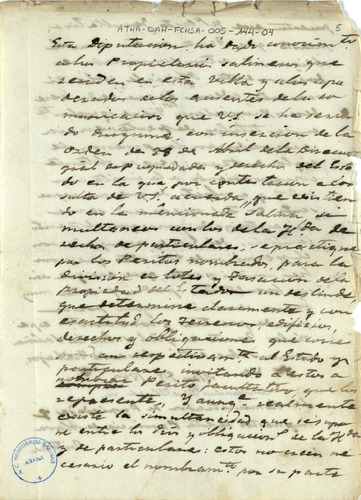 ATHA-DAH-FCHSA-005-144-04
5
Esta Diputacion ha dado conocimto
a los Propietarios salineros que
residen en esta Villa y a los apo
derados de los ausentes de la co
municacion que V.S. se ha servido
dirigirme, con insercion de la
orden de de Abril de la Direccion
gral de propiedades y derechos del Esta
do en la que, por contestacion a con
sulta de V.S. acuerda, que existien
do en la mencionada Salina, si
multaneos con los de la Hda de
rechos de particulares, se practique
por los Peritos nombrados, para la
division en lotes y Tasacion de la
Propiedad del Estado un deslinde
que determine claramente y con
exactitud los Terrenos, edificios,
derechos y obligaciones que corres
pondan respectivamte al Estado y
particulares, invitando a estos a
Perito facultativo que los
represente. Y aunque realmente
existe la simultaneidad que se supo
ne entre los dros y obligacions de la Hda
y de particulares: estos no creen ne
cesario el nombramto por su parte
C. HEREDEROS SALINAS
AÑANA